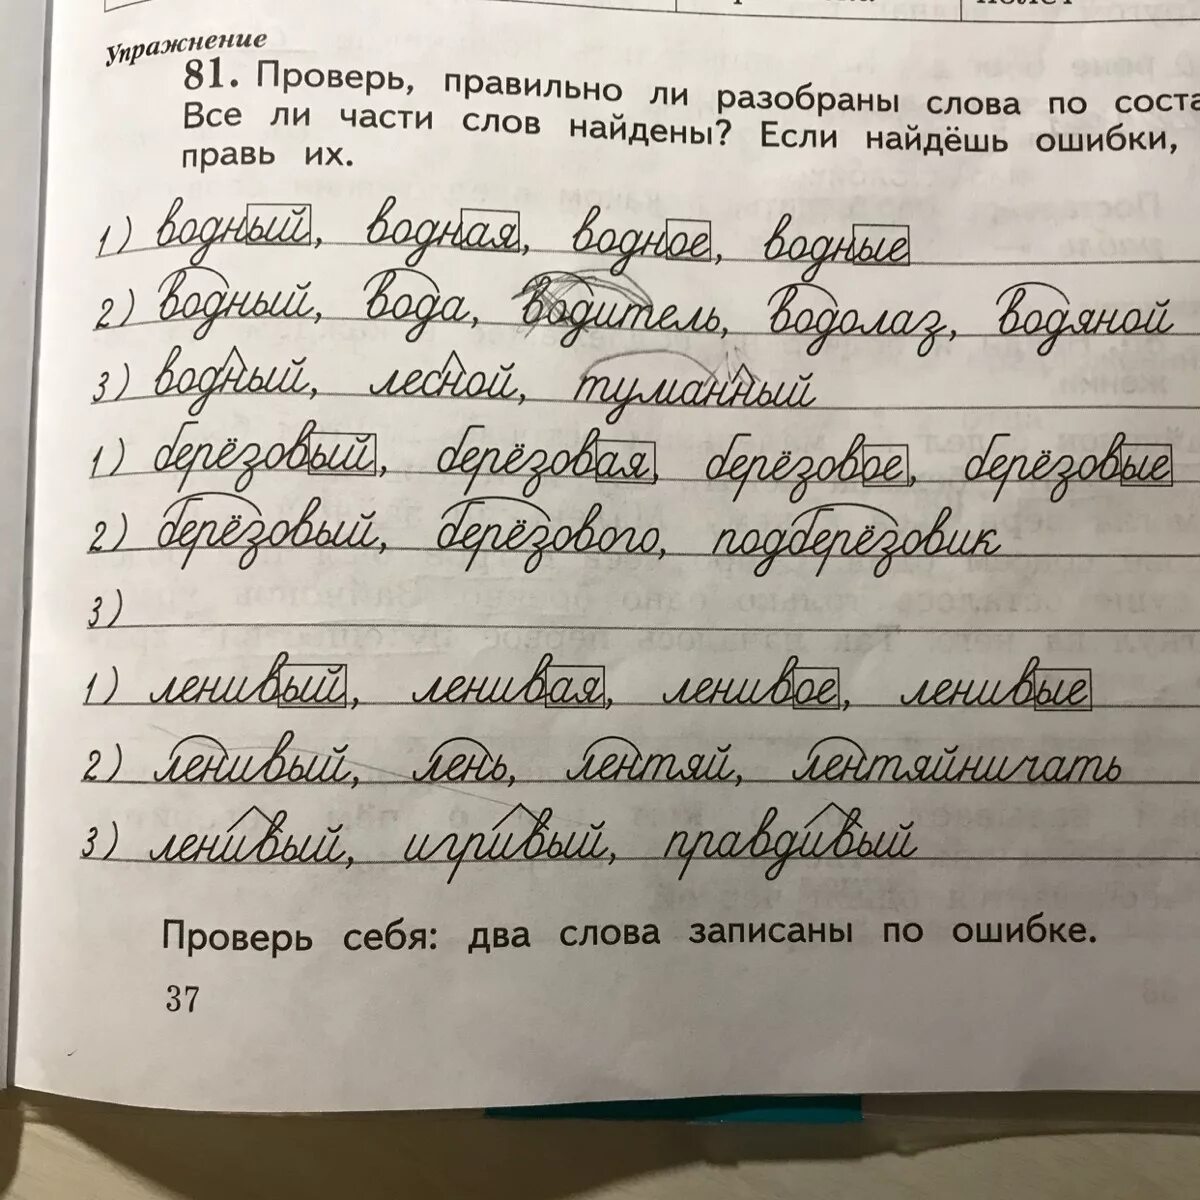 полёт
Упражнение
81. Проверь, правильно ли разобраны слова по соста
Все ли части слов найдены? Если найдёшь ошибки,
правь их.
1) водный, водная, водное, водные
2) водный, вода, водитель, водолаз, водяной
3) водный, лесной, туманный
1) берёзовый, берёзовая, берёзовое, берёзовые
2) берёзовый, берёзового, подберёзовик
3)
1) ленивый, ленивая, ленивое, ленивые
2) ленивый, лень, лентяй, лентяйничать
3) ленивый, игривый, правдивый
Проверь себя: два слова записаны по ошибке.
37